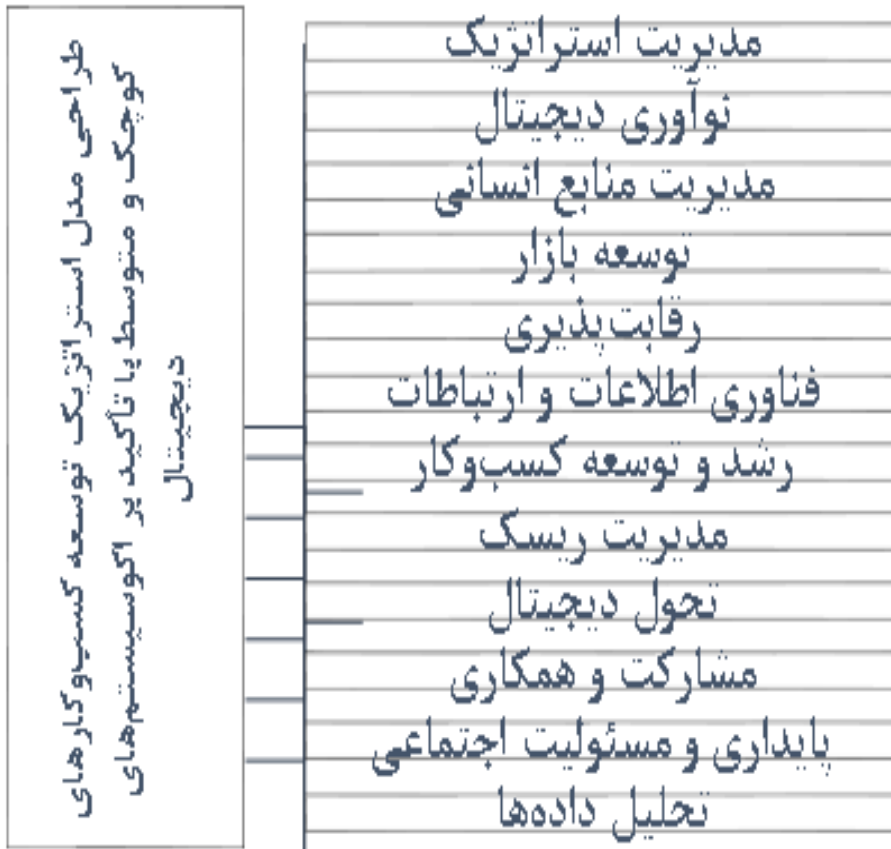 طراحی مدل استراتژیک توسعه کسب‌وکارهای
کوچک و متوسط با تأکید بر اکوسیستم‌های
دیجیتال
مدیریت استراتژیک
نوآوری دیجیتال
مدیریت منابع انسانی
توسعه بازار
رقابت‌پذیری
فناوری اطلاعات و ارتباطات
رشد و توسعه کسب‌وکار
مدیریت ریسک
تحول دیجیتال
مشارکت و همکاری
پایداری و مسئولیت اجتماعی
تحلیل داده‌ها